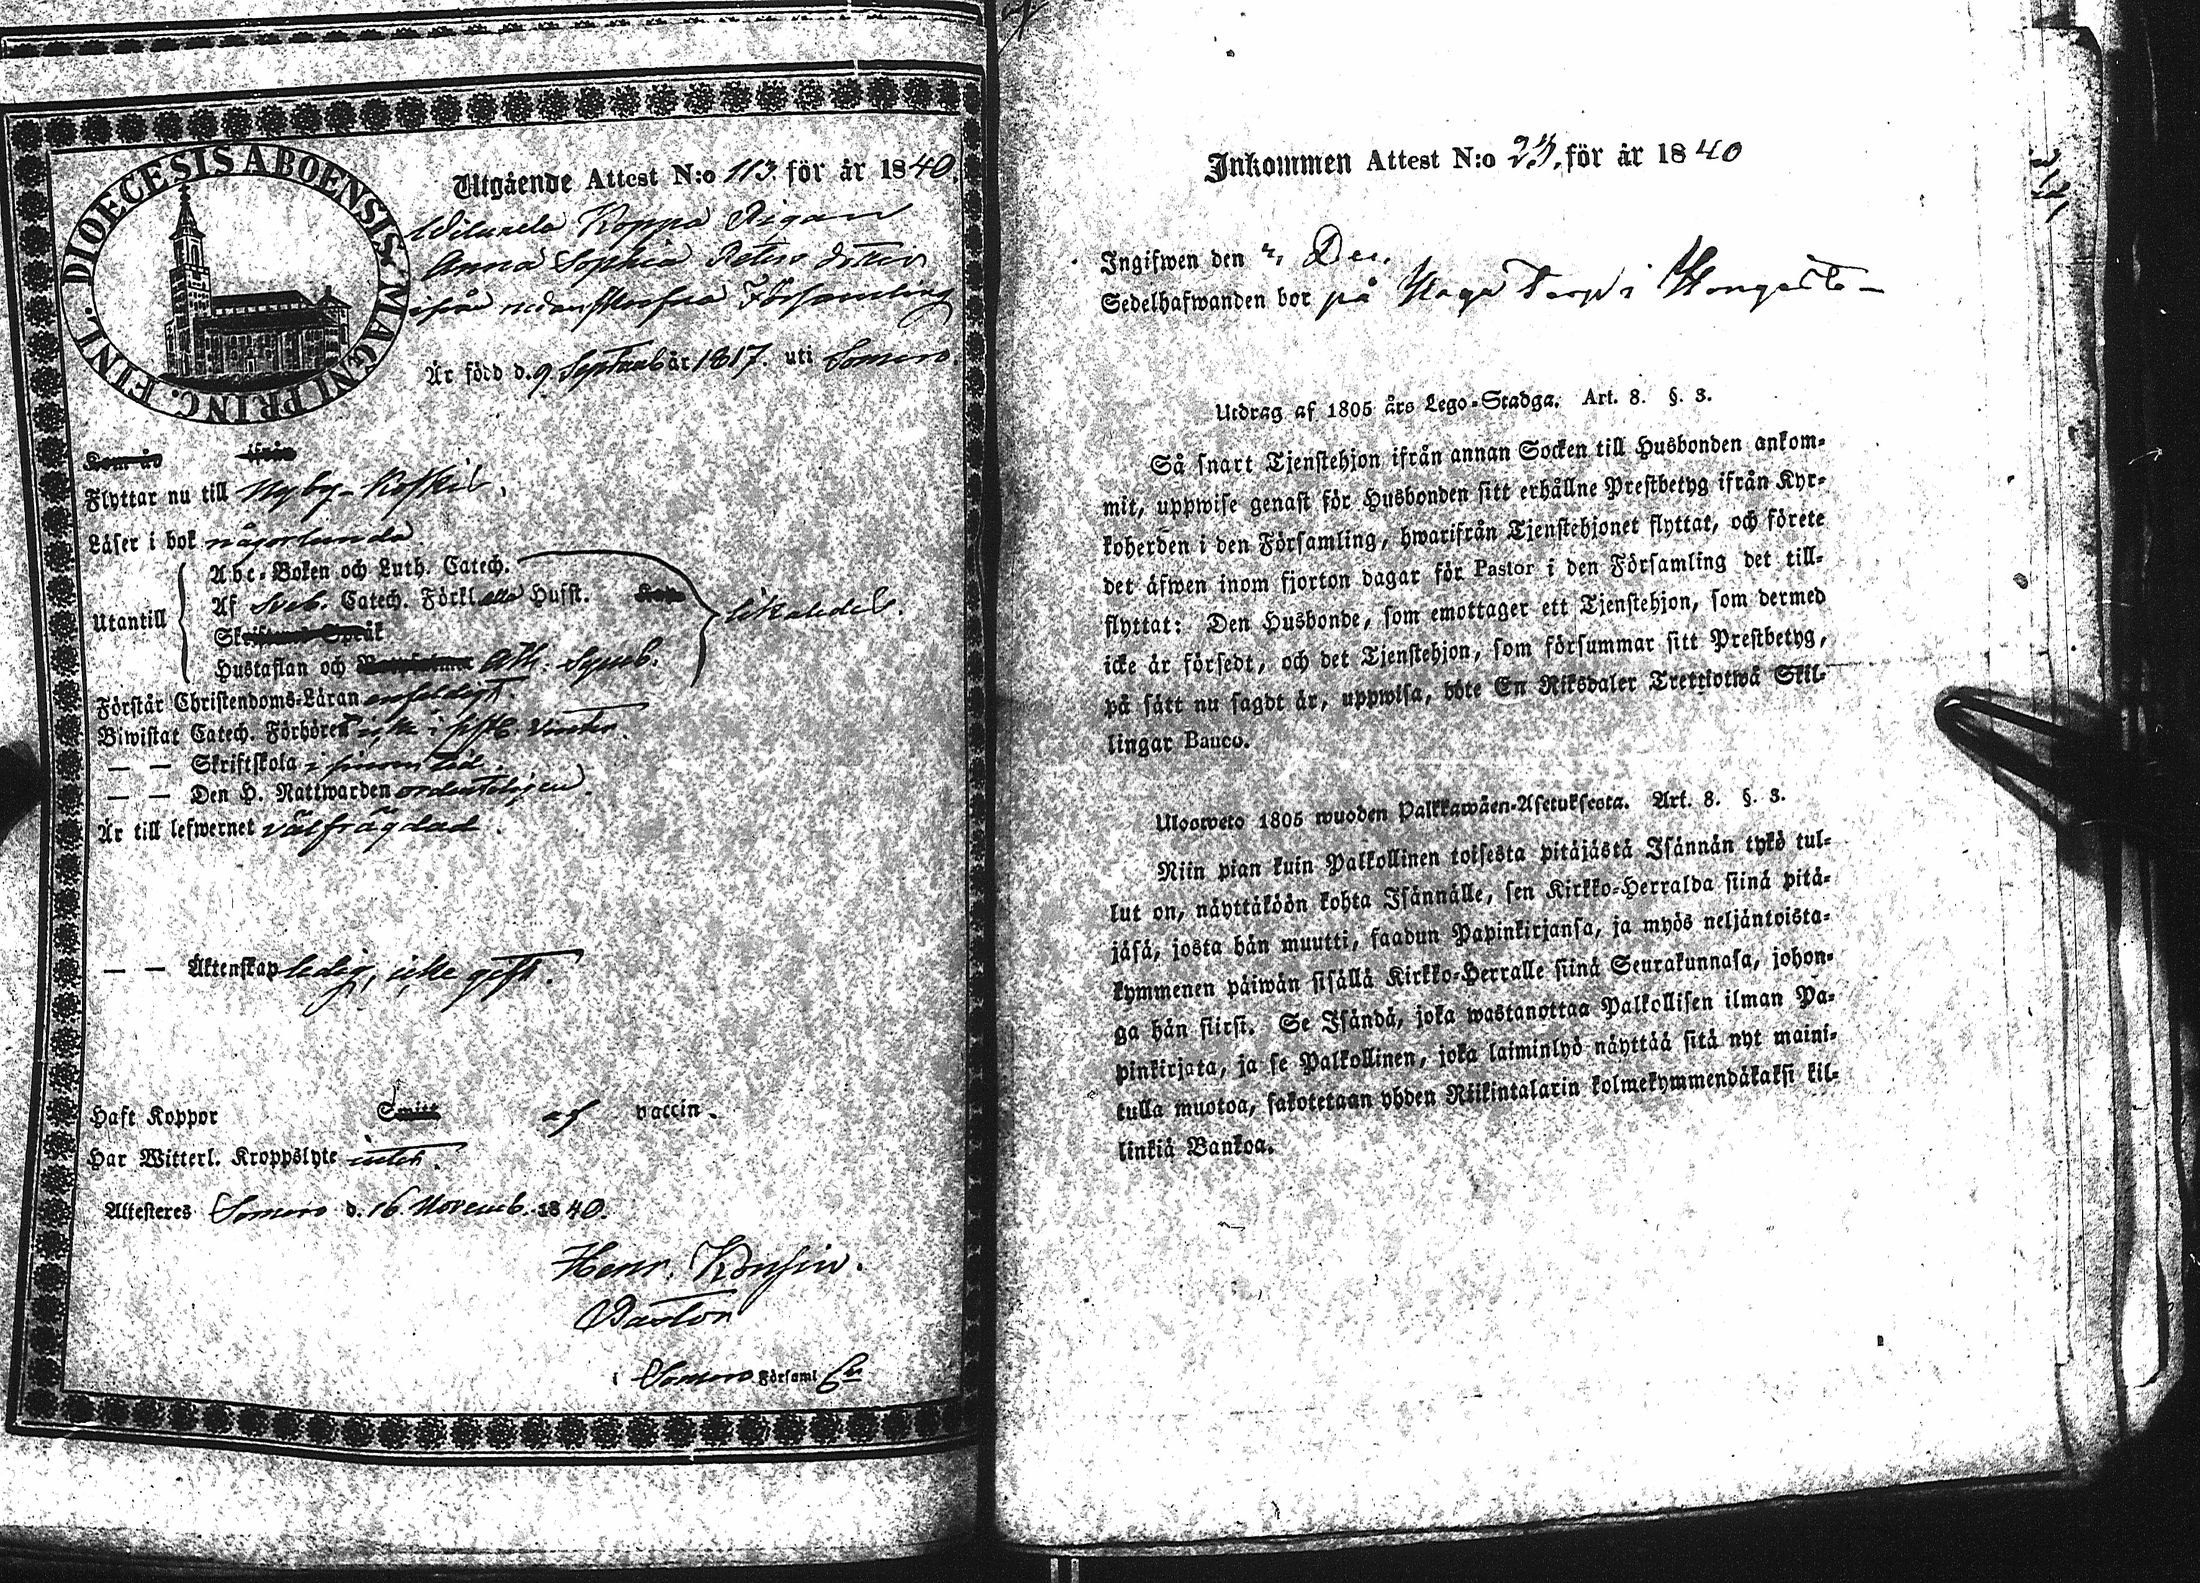 DIOECESIS ABOENSIS MAGNI PRINC. FINL.
Utgående Attest N:o 113 för år 1840.
Koppa Pigan
Anna Sophia Peters dotter
ifrån Församling
Är född d. 9 Septemb år 1817. uti Somero.
Kom år ifrån
Flyttar nu till Nyby-Koskis,
Läser i bok någorlunda
Abc-Boken och Luth. Catech.
Af Sveb. Catech. Förkl. Hufst.
Utantill
likaledes.
Skriftenes Språk
Hustaflan och Ath. Symb.
Förstår Christendoms-Läran enfaldigt.
Biwistat Catech. Förhören icke i sistl. vinter.
— — Skriftskola i sinom tid.
— — Den H. Nattwarden ordenteligen.
Är till lefwernet välfrägdad.
— — Äktenskap ledig, icke gift.
Haft Koppor Smitt af vaccin.
Har Witterl. Kroppslyte intet.
Attesteres Somero d. 16 Novemb. 1840.
Henr. Konsin.
Pastor
i Somero Församl
Inkommen Attest N:o 23, för år 1840
Ingifwen den Dec.
Sedelhafwanden bor på Haga Torp i
Utdrag af 1805 års Lego-Stadga. Art. 8. §. 3.
Så snart Tjenstehjon ifrån annan Socken till Husbonden ankom-
mit, uppwise genast för Husbonden sitt erhållne Prestbetyg ifrån Kyr-
koherden i den Församling, hwarifrån Tjenstehjonet flyttat, och förete
det äfwen inom fjorton dagar för Pastor i den Församling det till-
flyttat: Den Husbonde, som emottager ett Tjenstehjon, som dermed
icke är försedt, och det Tjenstehjon, som försummar sitt Prestbetyg,
på sätt nu sagdt är, uppwisa, böte En Riksdaler Trettiotwå Skil-
lingar Banco.
Ulosweto 1805 wuoden Palkkawäen-Asetuksesta. Art. 8. §. 3.
Niin pian kuin Palkollinen toisesta pitäjästä Isännän tykö tul-
lut on, näyttäköön kohta Isännälle, sen Kirkko-Herralda siinä pitä-
jäsä, josta hän muutti, saadun Papinkirjansa, ja myös neljäntoista-
kymmenen päiwän sisällä Kirkko-Herralle siinä Seurakunnasa, johon-
ga hän siirsi. Se Isändä, joka wastanottaa Palkollisen ilman Pa-
pinkirjata, ja se Palkollinen, joka laiminlyö näyttää sitä nyt maini-
tulla muotoa, sakotetaan yhden Riikintalarin kolmekymmendäkaksi kil-
linkiä Bankoa.